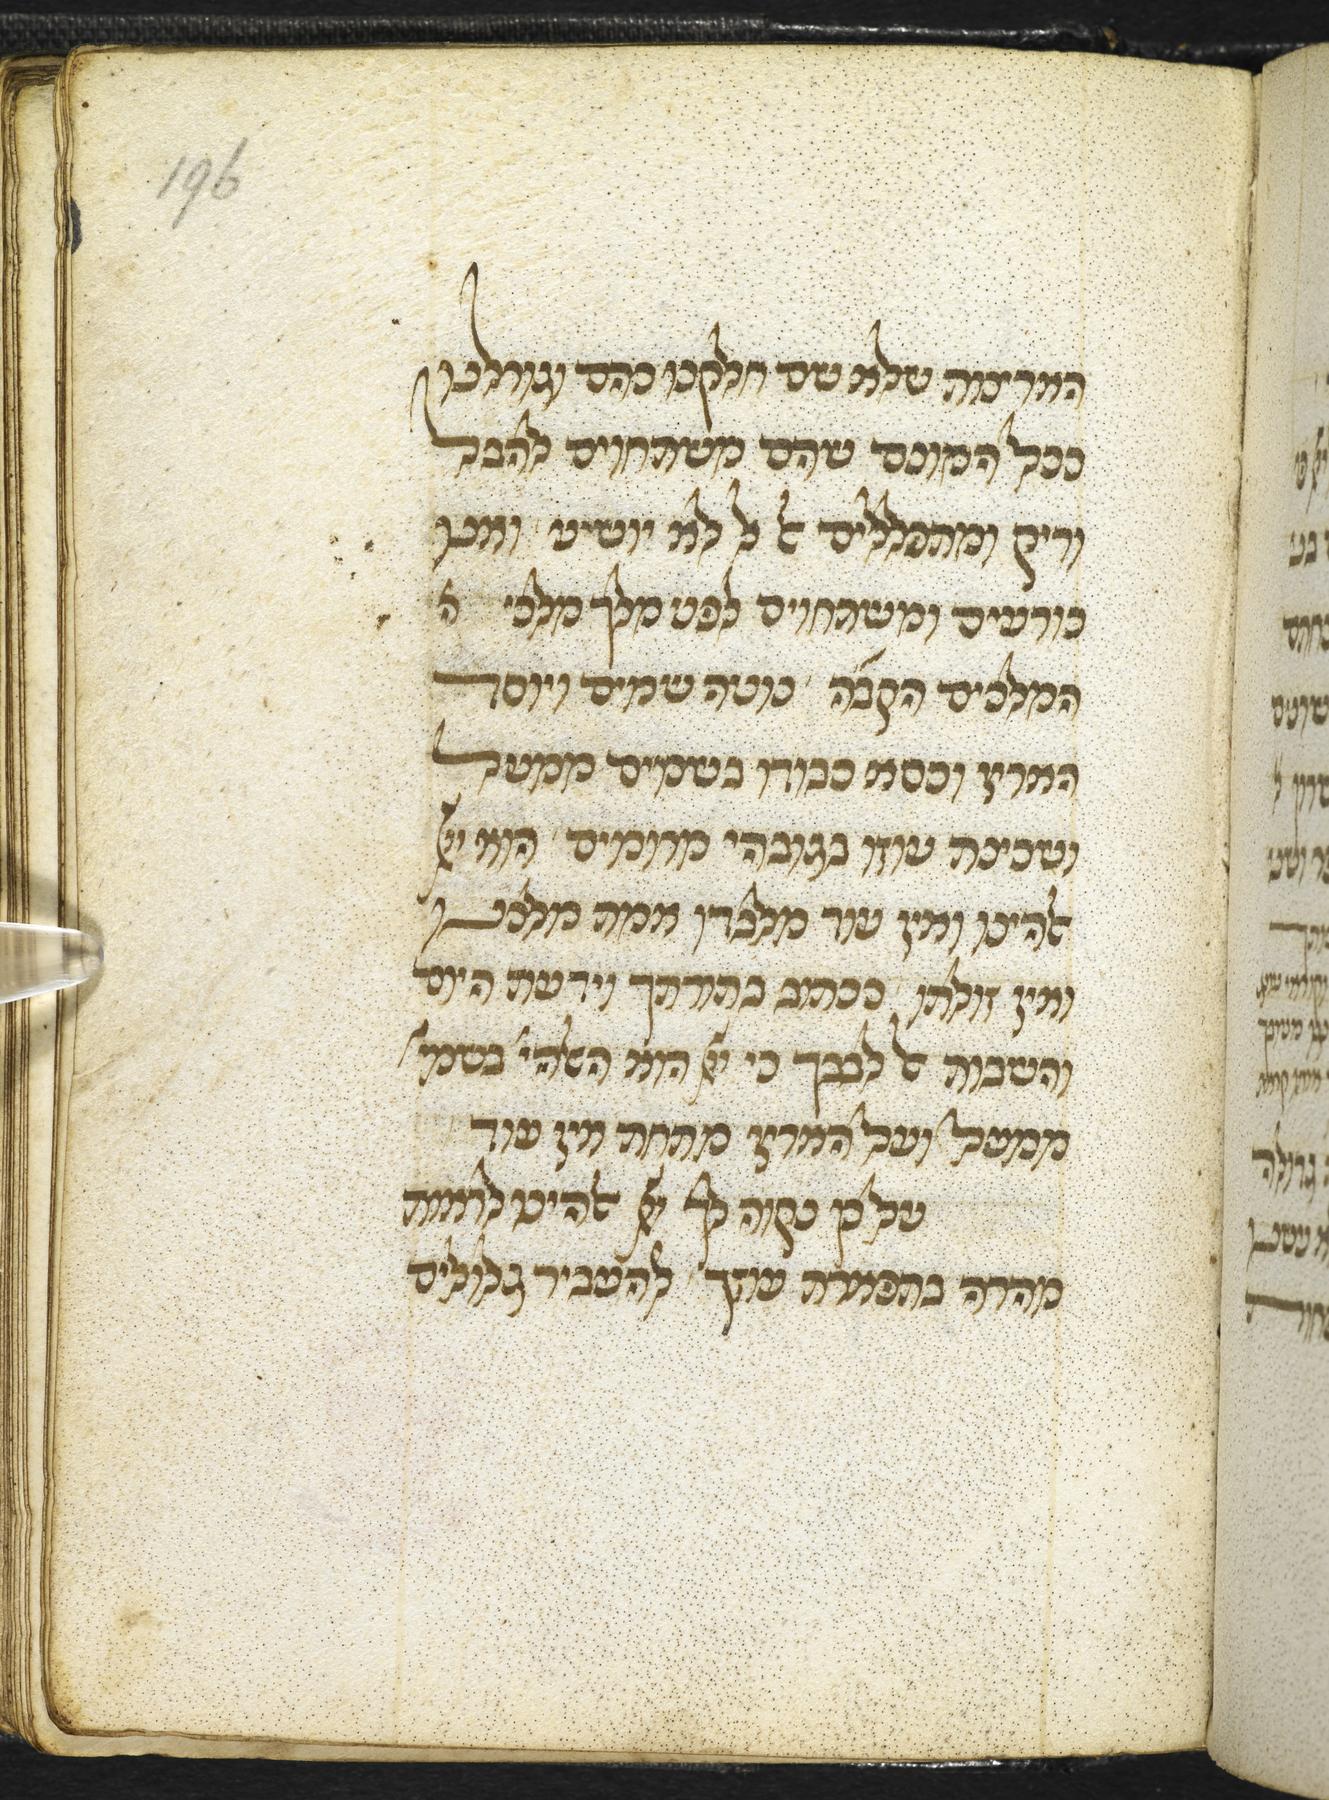 196
האדימה שלא שם חלקנו כהם וגורלנו
ככל המונם שהם משתחוים להבל
וריק ומתפללים אל אל לא יושיע ואנו
כורעים ומשתחוים לפני מלך מלכי ה
המלכים הק״בה נוטה שמים ויוסד
הארץ וכסא כבודו בשמים ממעל
ושכינת עוזו בגובהי מרומים הוא יי
אלהינו ואין עוד מלבדו אמת מלכנו
ואין זולתו ככתוב בתורתך וידעת היום
והשבות אל לבבך כי יי הוא האלהי׳ בשמי׳
ממעל ועל הארץ מתחת אין עוד
על כן נקוה לך יי אלהינו לראות
מהרה בתפארת עוזך להעביר גלולים